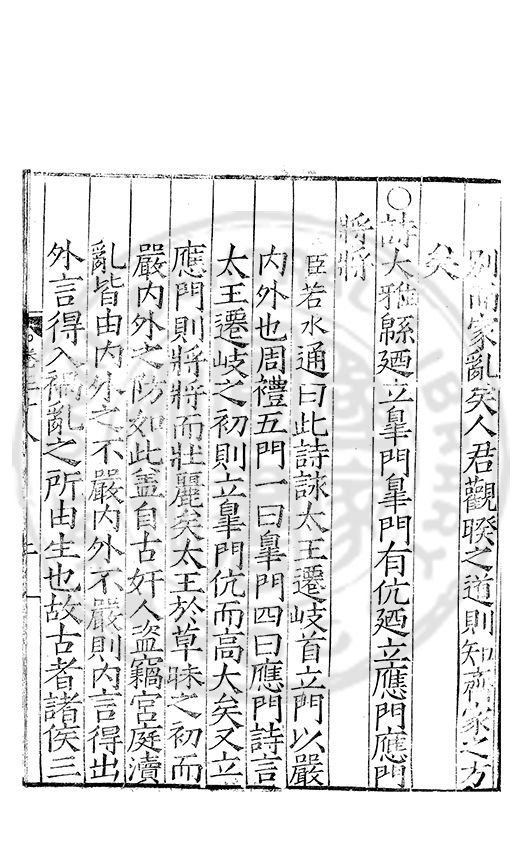 別而家亂矣人君觀睽之道則知齊家之方
矣
○詩大雅緜廼立臯門臯門有伉廼立應門應門
將將
臣若水通曰此詩詠太王遷岐首立門以嚴
內外也周禮五門一曰臯門四曰應門詩言
太王遷岐之初則立臯門伉而高大矣又立
應門則將將而壯麗矣太王於草昧之初而
嚴內外之防如此蓋自古奸人盜竊宮庭瀆
亂皆由內外之不嚴內外不嚴則內言得出
外言得入禍亂之所由生也故古者諸侯三